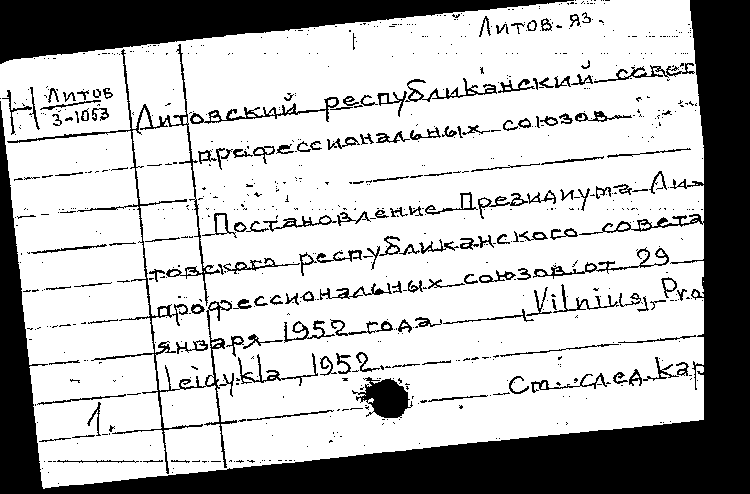 Литов. яз.
Н Литов
3-1053
Литовский республиканский совет
профессиональных союзов
Постановление Президиума Ли-
товского республиканского совета
профессиональных союзов от 29
января 1952 года. [Vilnius], Prof
leidykla, 1952
См. след. кар
1.